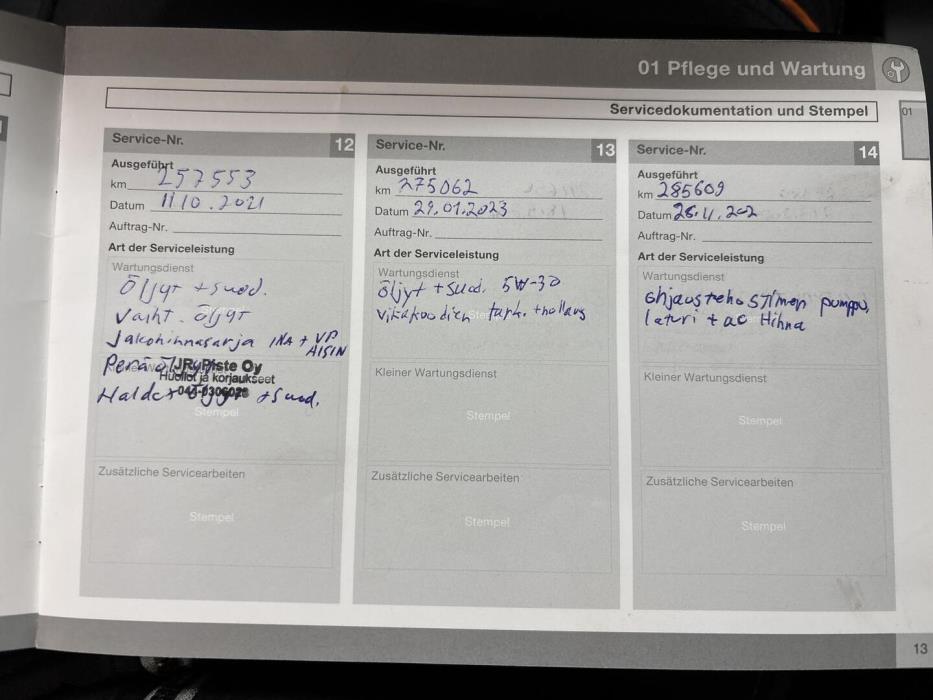 01 Pflege und Wartung
01
Servicedokumentation und Stempel
Service-Nr. 12
Ausgeführt
km 257553
Datum 11.10.2021
Auftrag-Nr.
Art der Serviceleistung
Wartungsdienst
Öljyt + suod.
Vaiht. öljyt
Jakohihnasarja INA + VP
AISIN
Perä öljyt
JRyPiste Oy
Huollot ja korjaukset
Haldex öljyt + suod.
Stempel
Zusätzliche Servicearbeiten
Stempel
Service-Nr. 13
Ausgeführt
km 275062
Datum 29.01.2023
Auftrag-Nr.
Art der Serviceleistung
Wartungsdienst
öljyt + suod. 5W-30
vikakoodien tark. + nollaus
Kleiner Wartungsdienst
Stempel
Zusätzliche Servicearbeiten
Stempel
Service-Nr. 14
Ausgeführt
km 285609
Datum 26.11.202
Auftrag-Nr.
Art der Serviceleistung
Wartungsdienst
ohjaustehostimen pumppu,
laturi + ac Hihna
Kleiner Wartungsdienst
Stempel
Zusätzliche Servicearbeiten
Stempel
13